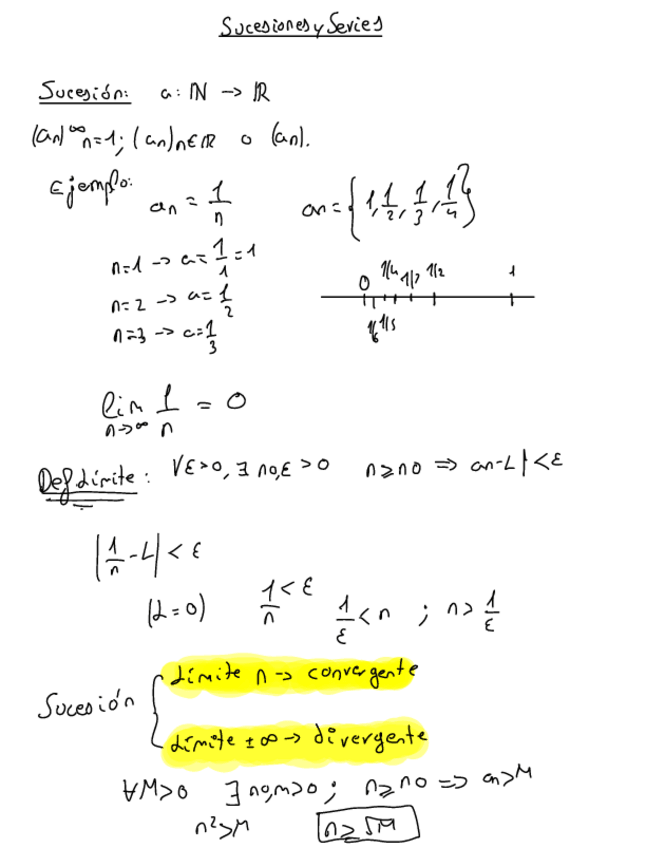 Sucesiones y Series
Sucesión: a: ℕ → ℝ
(an)^∞ n=1; (an)n∈ℝ o (an).
Ejemplo: an = 1/n an = {1, 1/2, 1/3, 1/4}
n=1 → a = 1/1 = 1
n=2 → a = 1/2
n=3 → a = 1/3
0 1/4 1/3 1/2 1
1/6 1/5
lim n→∞ 1/n = 0
Def límite: ∀ε>0, ∃ n0,ε >0 n≥n0 ⇒ an-L|<ε
|1/n - L| < ε
(L=0) 1/n < ε 1/ε < n ; n> 1/ε
Sucesión { Límite n → convergente
Límite ±∞ → divergente
∀M>0 ∃ n0,m>0 ; n≥n0 ⇒ an>M
n²>M n≥√M